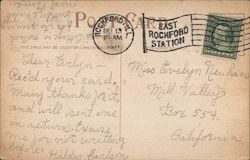 POST CARD
ROCKFORD, ILL.
DEC 13
10-AM
EAST
ROCKFORD
STATION
Dear Evelyn-
Rec'd your card,
Many thanks for it,
and will send one
in return. Excuse
me for not writing
before. Hildur Carlson
Miss Evelyn
Mill Valley
Box 554
California